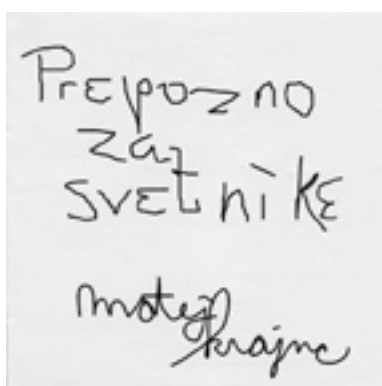 Prepozno
za
svetnike
matej
krajnc